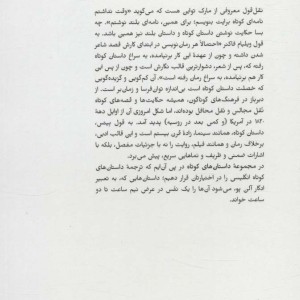 نقل‌قول معروفی از مارک تواین هست که می‌گوید «وقت نداشتم
نامه‌ای کوتاه برایت بنویسم؛ برای همین، نامه‌ای بلند نوشتم». چه
بسا حکایت نوشتن داستان کوتاه و داستان بلند نیز همین باشد. به
قول ویلیام فاکنر «احتمالاً هر رمان‌نویسی در ابتدای کارش قصد شاعر
شدن داشته و چون از عهدهٔ این کار برنیامده، به سراغ داستان کوتاه
رفته است که، پس از شعر، دشوارترین قالب نگارش است و چون از پس این
کار هم برنیامده، به سراغ رمان رفته است». آن کم‌گویی و گزیده‌گویی
که خصلت داستان کوتاه است بی‌اندازه توان‌فرسا و زمان‌بر است. از
دیرباز در فرهنگ‌های گوناگون، همیشه حکایت‌ها و قصه‌های کوتاه
نقل مجالس و نقل محافل بوده‌اند، اما شکل امروزی آن از اوایل دههٔ
۱۸۲۰ در آمریکا (و کمی بعد در روسیه) پدید آمد. به قول
داستان کوتاه، همانند سینما، زادهٔ قرن بیستم است و این ادبی،
برخلاف رمان و همانند فیلم، روایت را نه با جزئیات مفصل، بلکه با
اشارات ضمنی و ظریف و نماهایی سریع، پیش می‌برد.
در مجموعهٔ داستان‌های کوتاه در پی آن‌ایم که ترجمهٔ داستان‌های
کوتاه انگلیسی را در اختیارتان قرار دهیم؛ داستان‌هایی که، به تعبیر
ادگار آلن پو، می‌شود آن‌ها را یک نفس در عرض نیم ساعت تا دو
ساعت خواند.